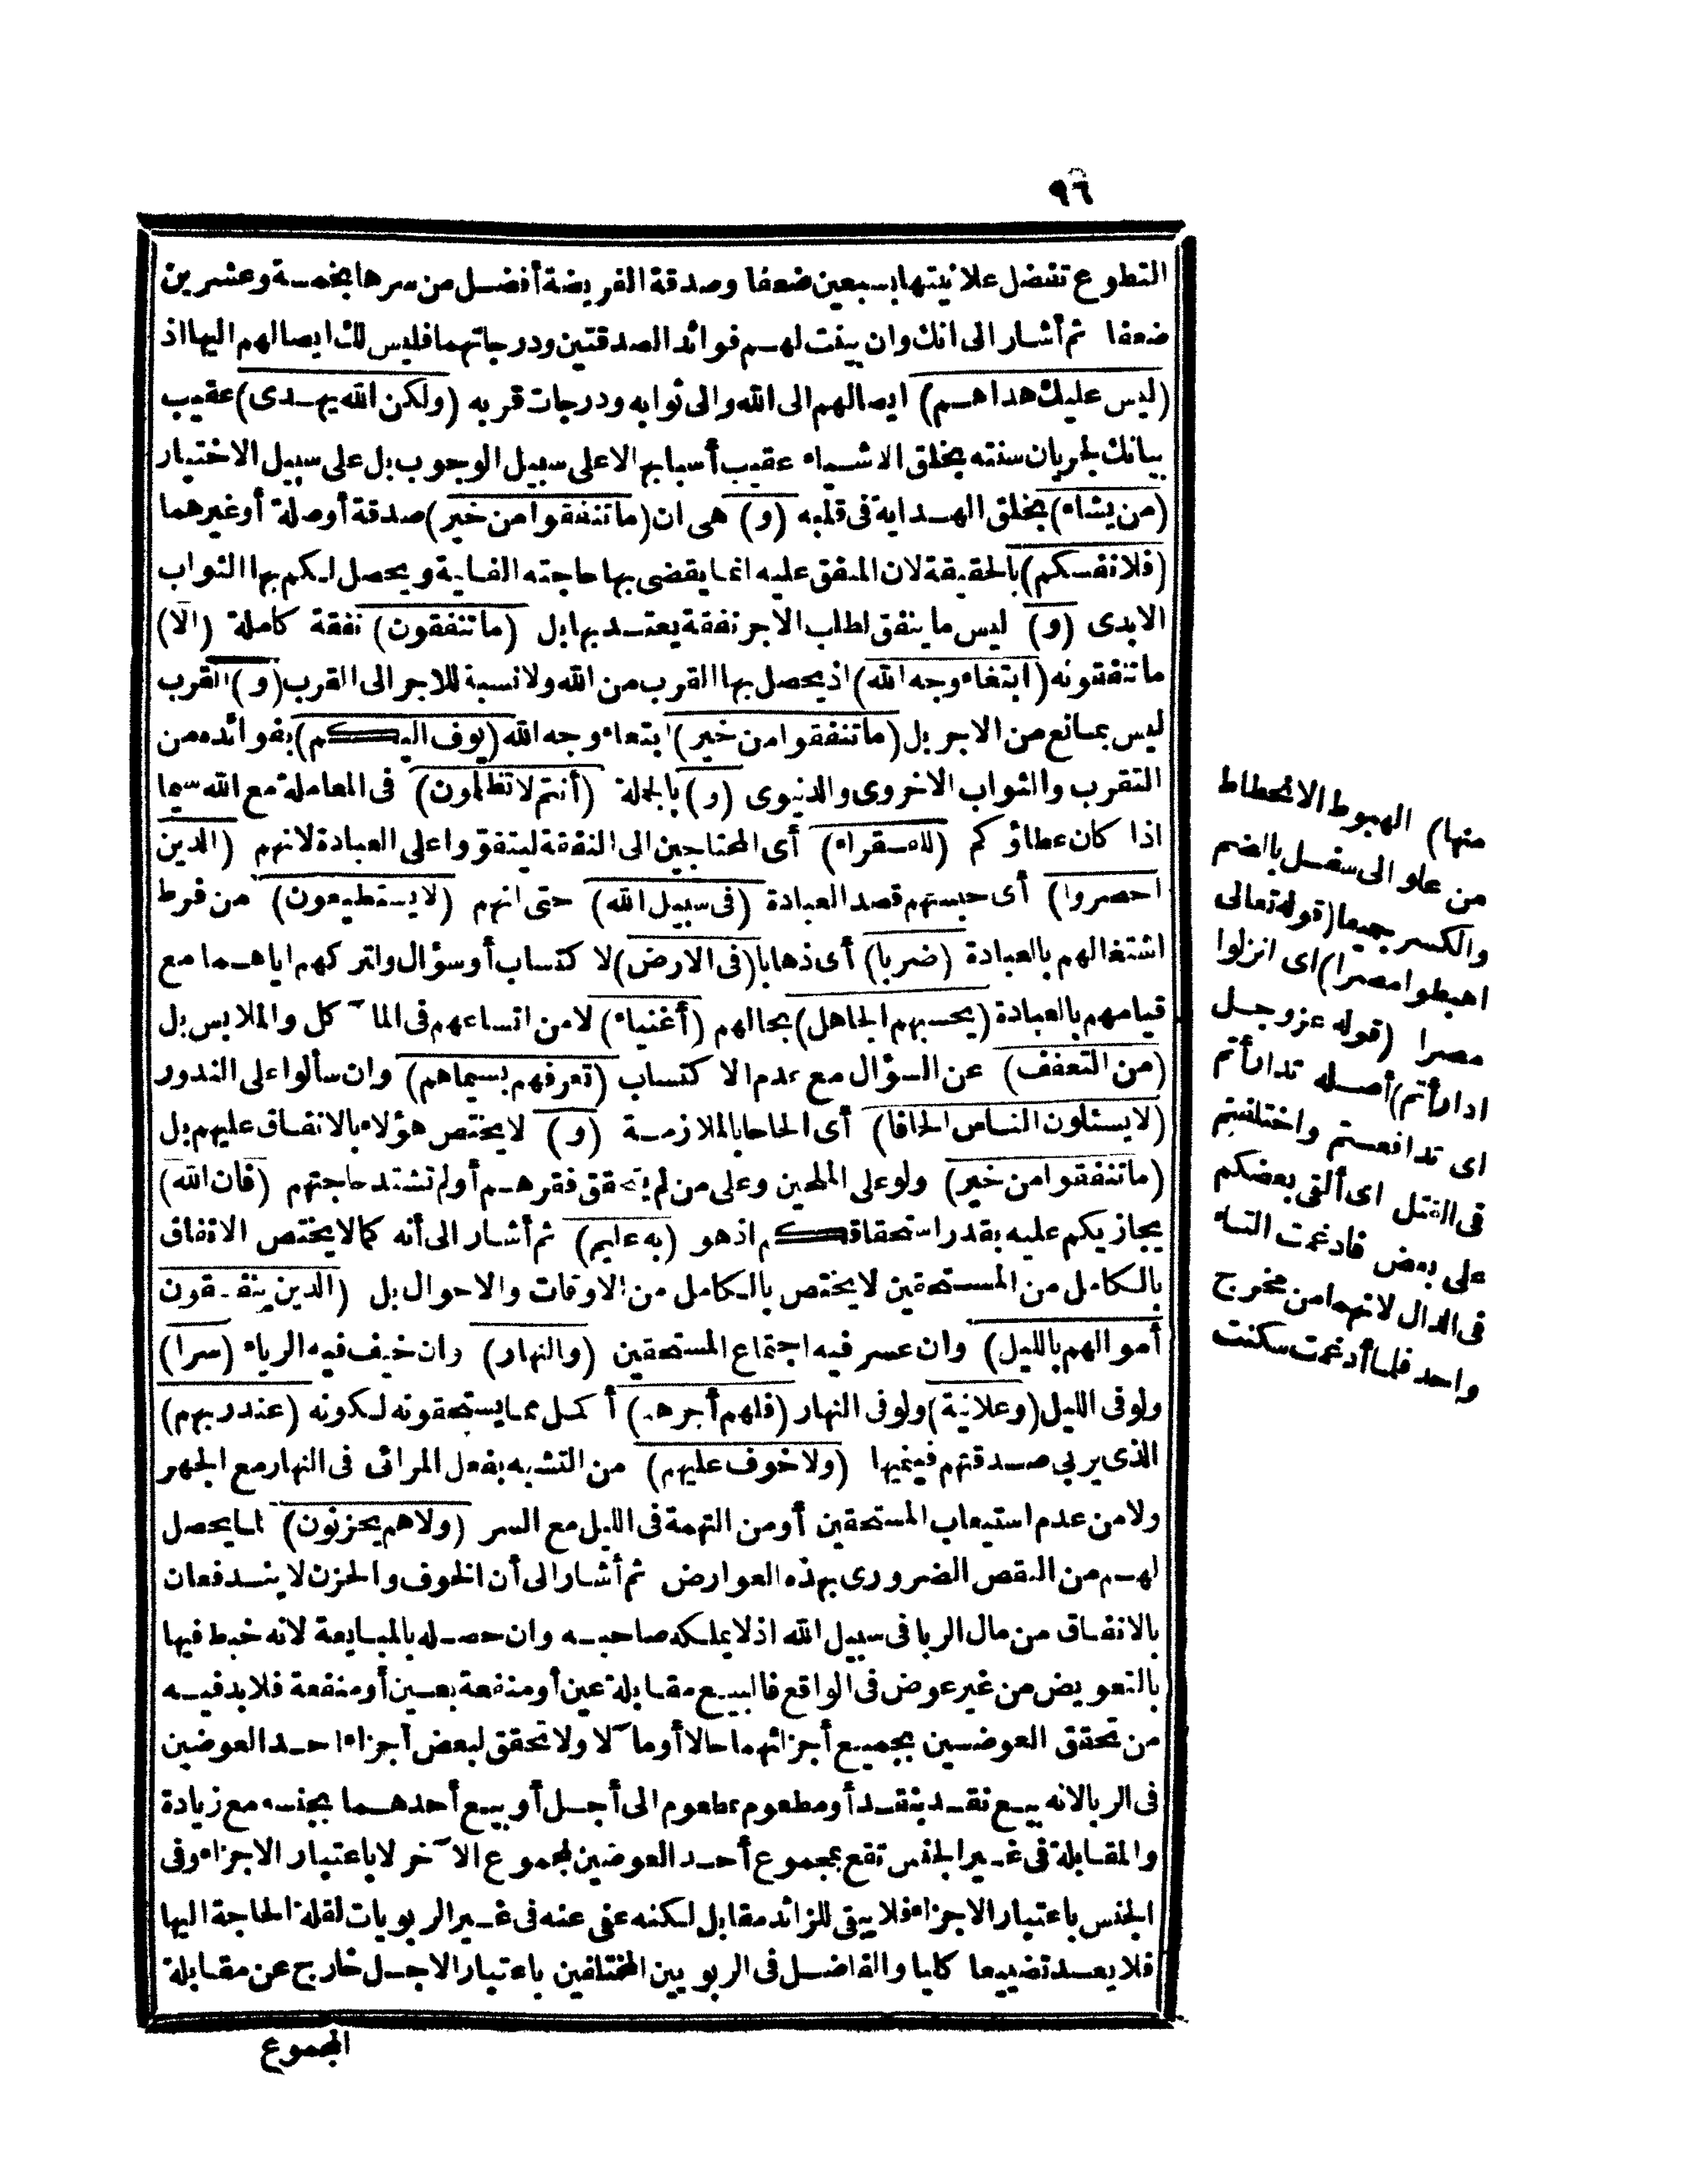 ٩٦
التطوع تفضل علانيتها بسبعين ضعفا وصدقة الفريضة أفضل من سرها بخمسة وعشرين
ضعفا ثم أشار الى انك وان بينت لهم فوائد الصدقتين ودرجاتهما فليس لك ايصالهم اليها اذ
(ليس عليك هداهم) ايصالهم الى الله والى ثوابه ودرجات قربه (ولكن الله يهدى) عقيب
بيانك لجريان سنته بخلق الاشياء عقيب أسبابها لا على سبيل الوجوب بل على سبيل الاختيار
(من يشاء) بخلق الهداية فى قلبه (و) هى ان (ما تنفقوا من خير) صدقة أوصلة أو غيرهما
(فلانفسكم) بالحقيقة لان المنفق عليه انما يقضى بها حاجته الفانية ويحصل لكم بها الثواب
الابدى (و) ليس ما ينفق لطلب الاجر نفقة يعتد بها بل (ما تنفقون) نفقة كاملة (الا)
ما تنفقونه (ابتغاء وجه الله) اذ يحصل بها القرب من الله ولا نسبة للاجر الى القرب (و) القرب
ليس بمانع من الاجر بل (ما تنفقوا من خير) ابتغاء وجه الله (يوف اليكم) بفوائده من
التقرب والثواب الاخروى والدنيوى (و) بالجملة (أنتم لا تظلمون) فى المعاملة مع الله سيما
اذا كان عطاؤكم (للفقراء) أى المحتاجين الى النفقة ليتقووا على العبادة لانهم (الذين
احصروا) أى حبستهم قصد العبادة (فى سبيل الله) حتى انهم (لا يستطيعون) من فرط
اشتغالهم بالعبادة (ضربا) أى ذهابا (فى الارض) لا كتساب أو سؤال ولتركهم اياهما مع
قيامهم بالعبادة (يحسبهم الجاهل) بحالهم (أغنياء) لا من اتساعهم فى المآ كل والملابس بل
(من التعفف) عن السؤال مع عدم الا كتساب (تعرفهم بسيماهم) وان سألوا على الندور
(لا يسئلون الناس الحافا) أى الحاحا بالملازمة (و) لا يختص هؤلاء بالانفاق عليهم بل
(ما تنفقوا من خير) ولو على الملحين وعلى من لم يتحقق فقرهم أو لم تشتد حاجتهم (فان الله)
يجازيكم عليه بقدر استحقاقكم اذ هو (به عليم) ثم أشار الى أنه كما لا يختص الانفاق
بالكامل من المستحقين لا يختص بالكامل من الاوقات والاحوال بل (الذين ينفقون
أموالهم بالليل) وان عسر فيه اجتماع المستحقين (والنهار) وان خيف فيه الرياء (سرا)
ولو فى الليل (وعلانية) ولو فى النهار (فلهم أجرهم) أ كمل مما يستحقونه لكونه (عند ربهم)
الذى يربى صدقتهم فينميها (ولا خوف عليهم) من التشبه بفعل المرائى فى النهار مع الجهر
ولا من عدم استيعاب المستحقين أو من التهمة فى الليل مع السر (ولاهم يحزنون) لما يحصل
لهم من النقص الضرورى بهذه العوارض ثم أشار الى أن الخوف والحزن لا يندفعان
بالانفاق من مال الربا فى سبيل الله اذ لا يملكه صاحبه وان حصله بالمبايعة لانه خبط فيها
بالتعويض من غير عوض فى الواقع فالبيع مقابلة عين أو منفعة بعين أو منفعة فلا بد فيه
من تحقق العوضين بجميع أجزائهما حالا أو مآ لا ولا تحقق لبعض أجزاء احد العوضين
فى الربا لانه بيع نقد بنقد أو مطعوم بمطعوم الى أجل أو بيع أحدهما بجنسه مع زيادة
والمقابلة فى غير الجنس تقع بمجموع أحد العوضين لمجموع الآ خر لا باعتبار الاجزاء وفى
الجنس باعتبار الاجزاء فلا يبقى للزائد مقابل لكنه عفى عنه فى غير الربويات لقلة الحاجة اليها
فلا يعد تضييعا كليا والفاضل فى الربويين المختلفين باعتبار الاجل خارج عن مقابلة
المجموع
منها) الهبوط الانحطاط
من علو الى سفل بالضم
والكسر جميعا (قوله تعالى
اهبطوا مصرا) اى انزلوا
مصرا (قوله عز وجل
ادارأتم) أصله تدارأتم
اى تدافعتم واختلفتم
فى القتل اى ألقى بعضكم
على بعض فادغمت التاء
فى الدال لانهما من مخرج
واحد فلما أدغمت سكنت